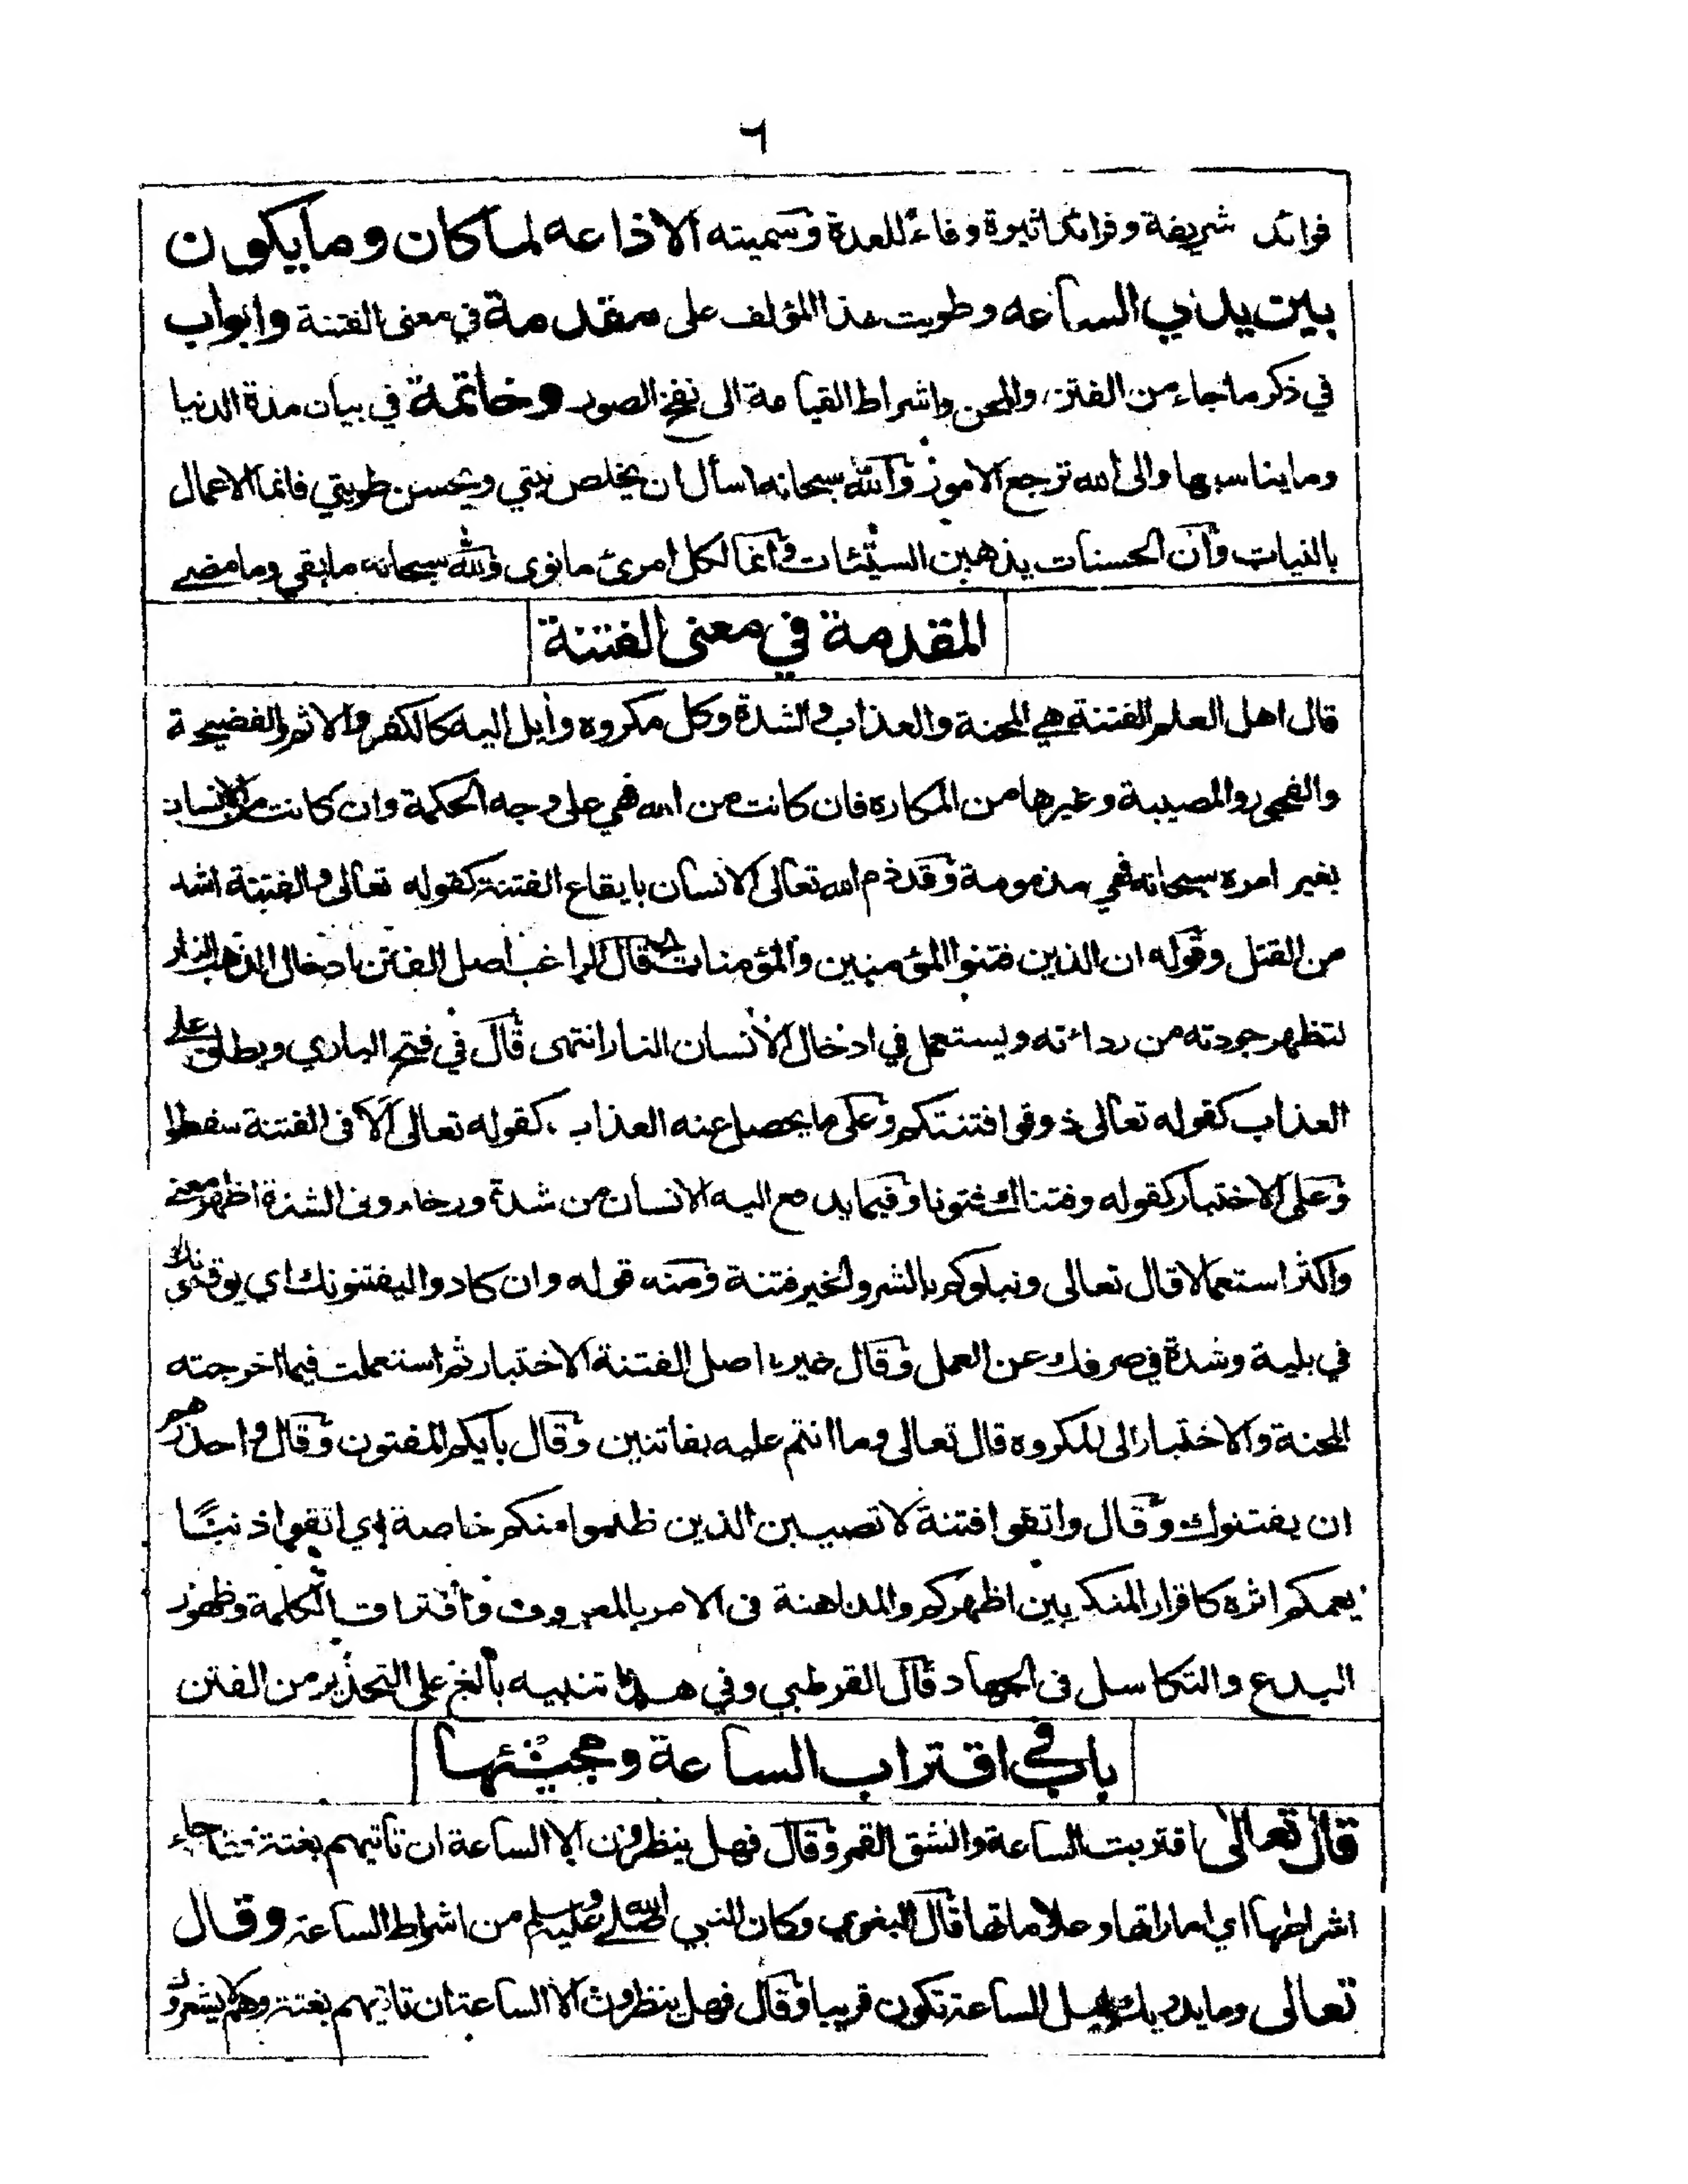 ٦
فوائد شريفة وفرائد اثيرة وفاء للعدة وسميته الاذاعه لما كان وما يكون
بين يدي الساعه وطويت هذا المؤلف على مقدمة في معنى الفتنة وابواب
في ذكر ما جاء من الفتن والمحن واشراط القيامة الى نفخ الصور وخاتمة في بيان مدة الدنيا
وما يناسبها والى الله ترجع الامور والله سبحانه اسأل ان يخلص نيتي ويحسن طويتي فانما الاعمال
بالنيات وان الحسنات يذهبن السيئات وانما لكل امرئ ما نوى ولله سبحانه ما بقي وما مضى
المقدمة في معنى الفتنة
قال اهل العلم الفتنة هي المحنة والعذاب والشدة وكل مكروه وأيل اليه كالكفر والاثم والفضيحة
والفجور والمصيبة وغيرها من المكاره فان كانت من الله فهي على وجه الحكمة وان كانت من الانسان
بغير امره سبحانه فهي مذمومة وقد ذم الله تعالى الانسان بايقاع الفتنة كقوله تعالى والفتنة اشد
من القتل وقوله ان الذين فتنوا المؤمنين والمؤمنات قال الراغب اصل الفتن ادخال الذهب النار
لتظهر جودته من رداءته ويستعمل في ادخال الانسان النار انتهى قال في فتح الباري ويطلق على
العذاب كقوله تعالى ذوقوا فتنتكم وعلى ما يحصل عنه العذاب كقوله تعالى الا في الفتنة سقطوا
وعلى الاختبار كقوله وفتناك فتونا وفيما يدفع اليه الانسان من شدة ورخاء وفي الشدة اظهر معنى
واكثر استعمالا قال تعالى ونبلوكم بالشر والخير فتنة ومنه قوله وان كادوا ليفتنونك اي يوقعونك
في بلية وشدة في صرفك عن العمل وقال غيره اصل الفتنة الاختبار ثم استعملت فيما اخرجته
المحنة والاختبار الى المكروه قال تعالى وما انتم عليه بفاتنين وقال بأيكم المفتون وقال واحذرهم
ان يفتنوك وقال واتقوا فتنة لا تصيبن الذين ظلموا منكم خاصة اي اتقوا ذنبا
يعمكم اثره كاقرار المنكر بين اظهركم والمداهنة في الامر بالمعروف وافتراق الكلمة وظهور
البدع والتكاسل في الجهاد قال القرطبي وفي هذا تنبيه بالغ على التحذير من الفتن
باب في اقتراب الساعة ومجيئها
قال تعالى اقتربت الساعة وانشق القمر وقال فهل ينظرون الا الساعة ان تأتيهم بغتة فقد جاء
اشراطها اي اماراتها وعلاماتها قال البغوي وكان النبي صلى الله عليه وسلم من اشراط الساعة وقال
تعالى وما يدريك لعل الساعة تكون قريبا وقال فهل ينظرون الا الساعة ان تاتيهم بغتة وهم لا يشعرون